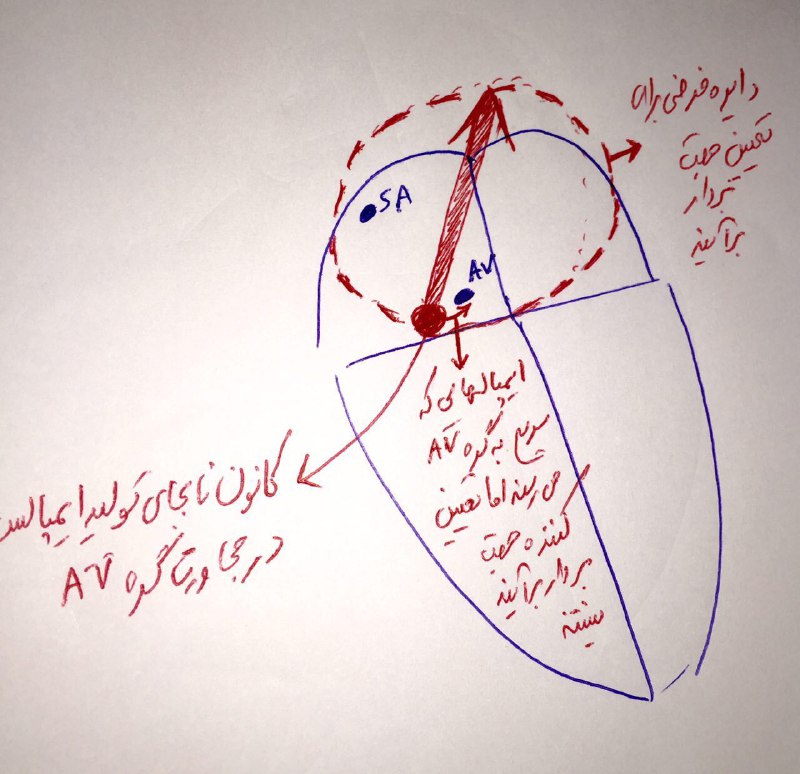 دایره فرضی برای
تعیین جهت
بردار
برآیند
SA
AV
ایمپالسهای که
سریع به گره AV
می رسند اما تعیین
کننده جهت
بردار برآیند
نیستند
کانون نابجای تولید ایمپالس
در مجاورت گره AV